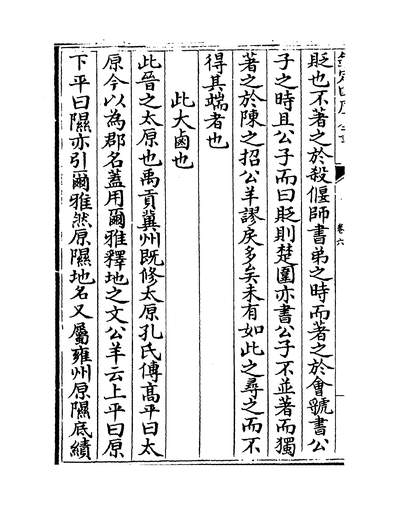 欽定四庫全書
卷六
貶也不著之於殺偃師書弟之時而著之於會虢書公
子之時且公子而曰貶則楚圍亦書公子不並著而獨
著之於陳之招公羊謬戾多矣未有如此之尋之而不
得其端者也
此大鹵也
此晉之太原也禹貢冀州既修太原孔氏傳髙平曰太
原今以為郡名蓋用爾雅釋地之文公羊云上平曰原
下平曰隰亦引爾雅然原隰地名又屬雍州原隰底績